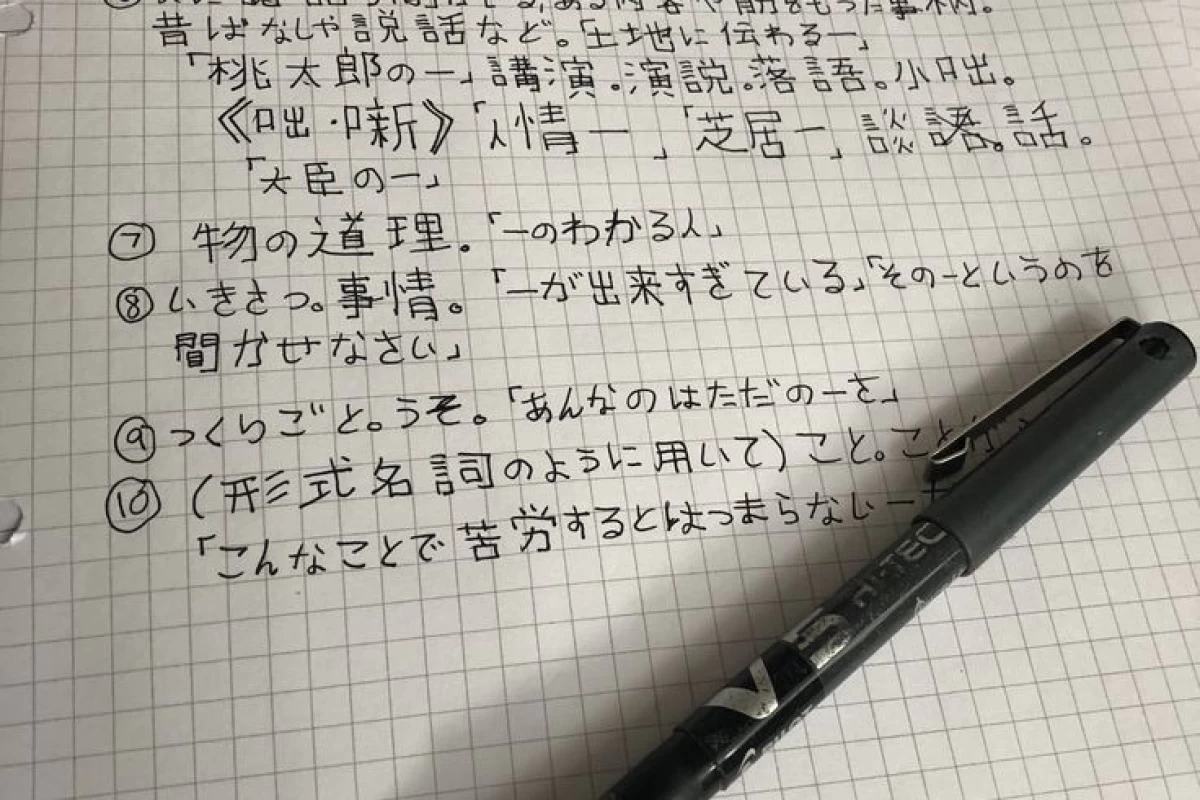 昔ばなしや説話など。「土地に伝わる一」
「桃太郎の一」講演。演説。落語。小咄。
《咄・噺》「人情一」「芝居一」談語。話。
「大臣の一」
⑦ 物の道理。「一のわかる人」
⑧ いきさつ。事情。「一が出来すぎている」「その一というのを
聞かせなさい」
⑨ つくりごと。うそ。「あんなのはただの一さ」
⑩ (形式名詞のように用いて) こと。こと
「こんなことで苦労するとはつまらない一
V5 HI-TEC